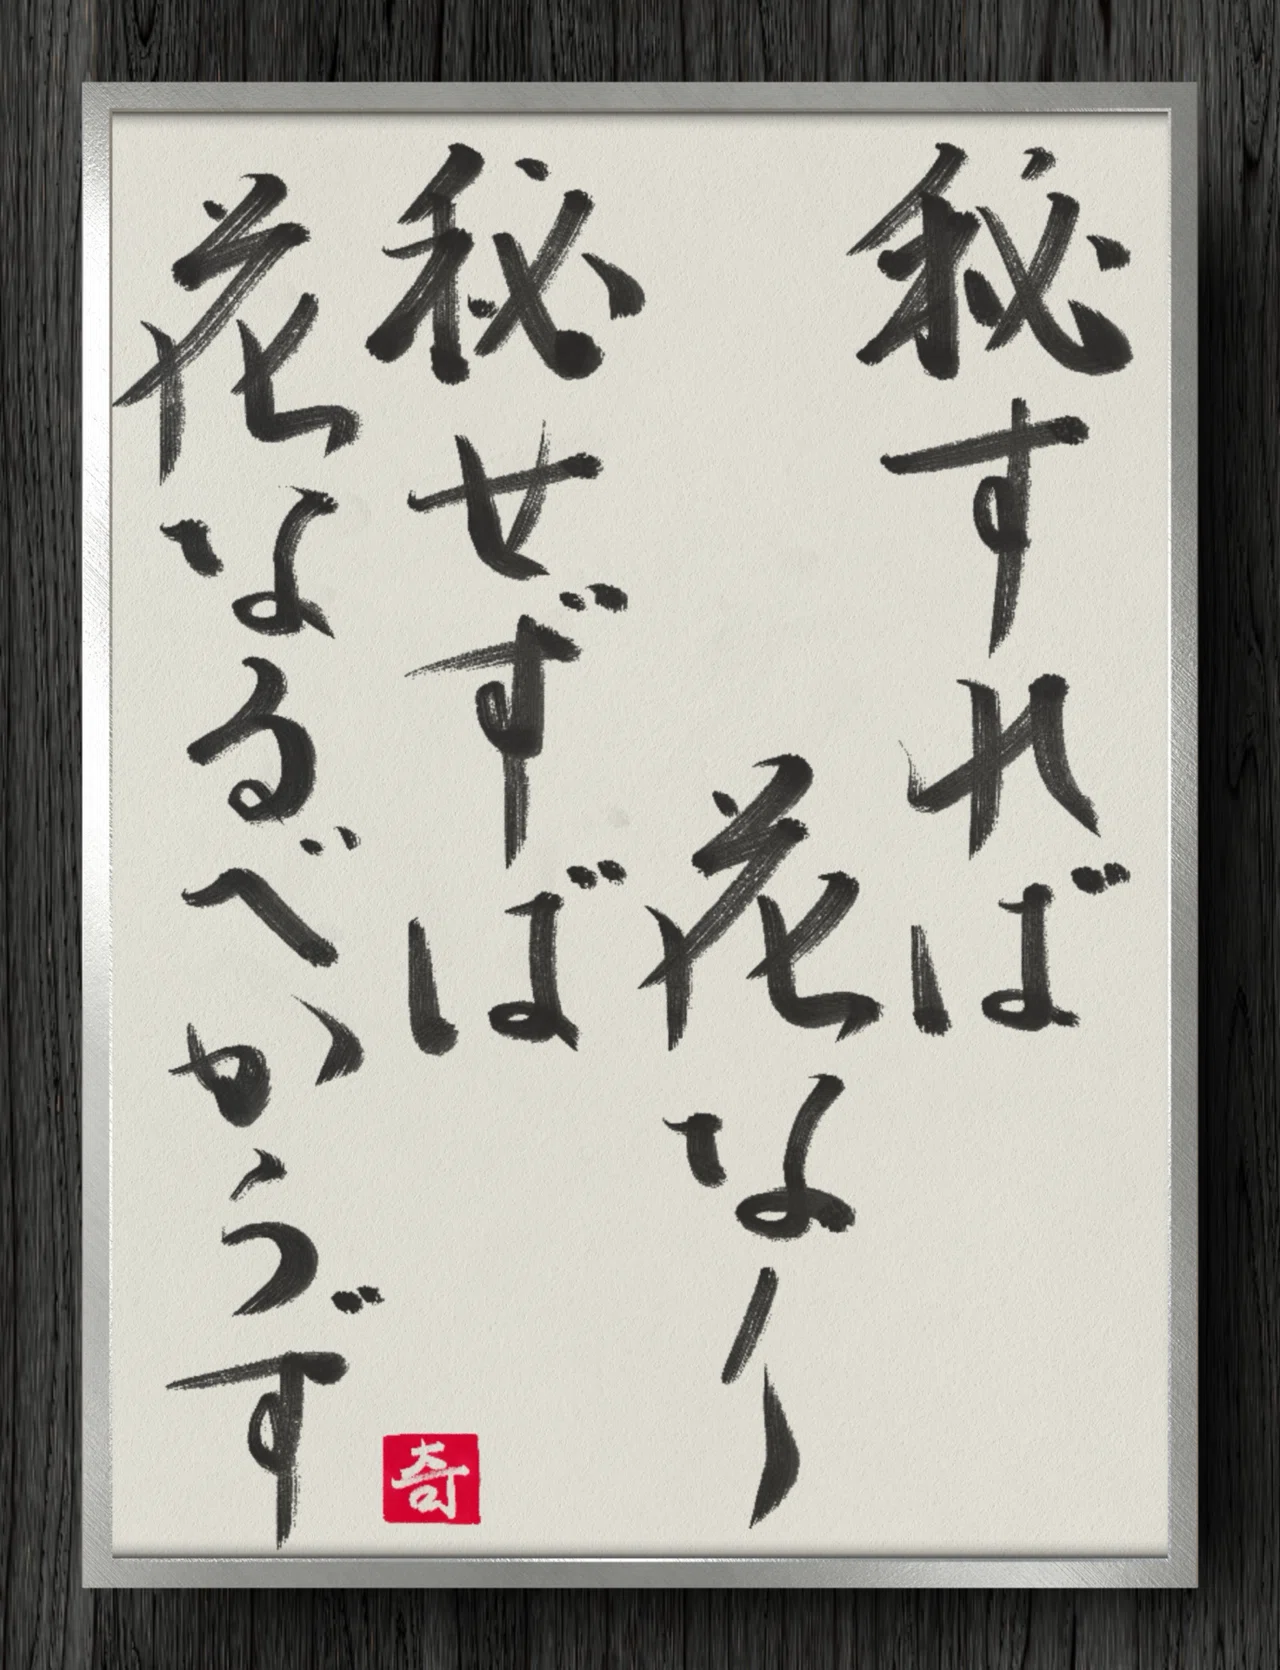 秘すれば
花なり
秘せずば
花なるべからず
奇